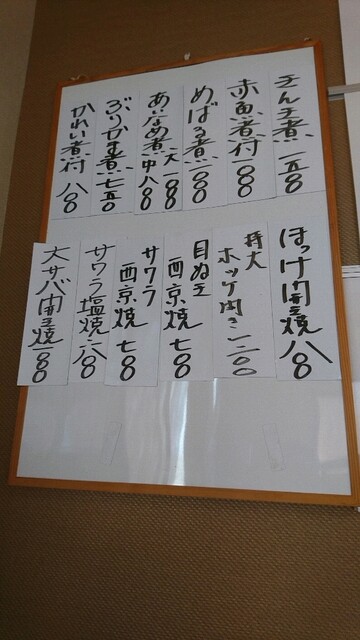 きんき煮一五〇〇
赤魚煮付一〇〇〇
めばる煮一〇〇〇
あいなめ煮大一〇〇〇
中八〇〇
ぶりかま煮七五〇
かれい煮付八〇〇
ほっけ開き焼八〇〇
特大ホッケ開き一二〇〇
目ぬき西京焼七〇〇
サワラ西京焼七〇〇
サワラ塩焼六八〇
大サバ開き焼一〇〇〇